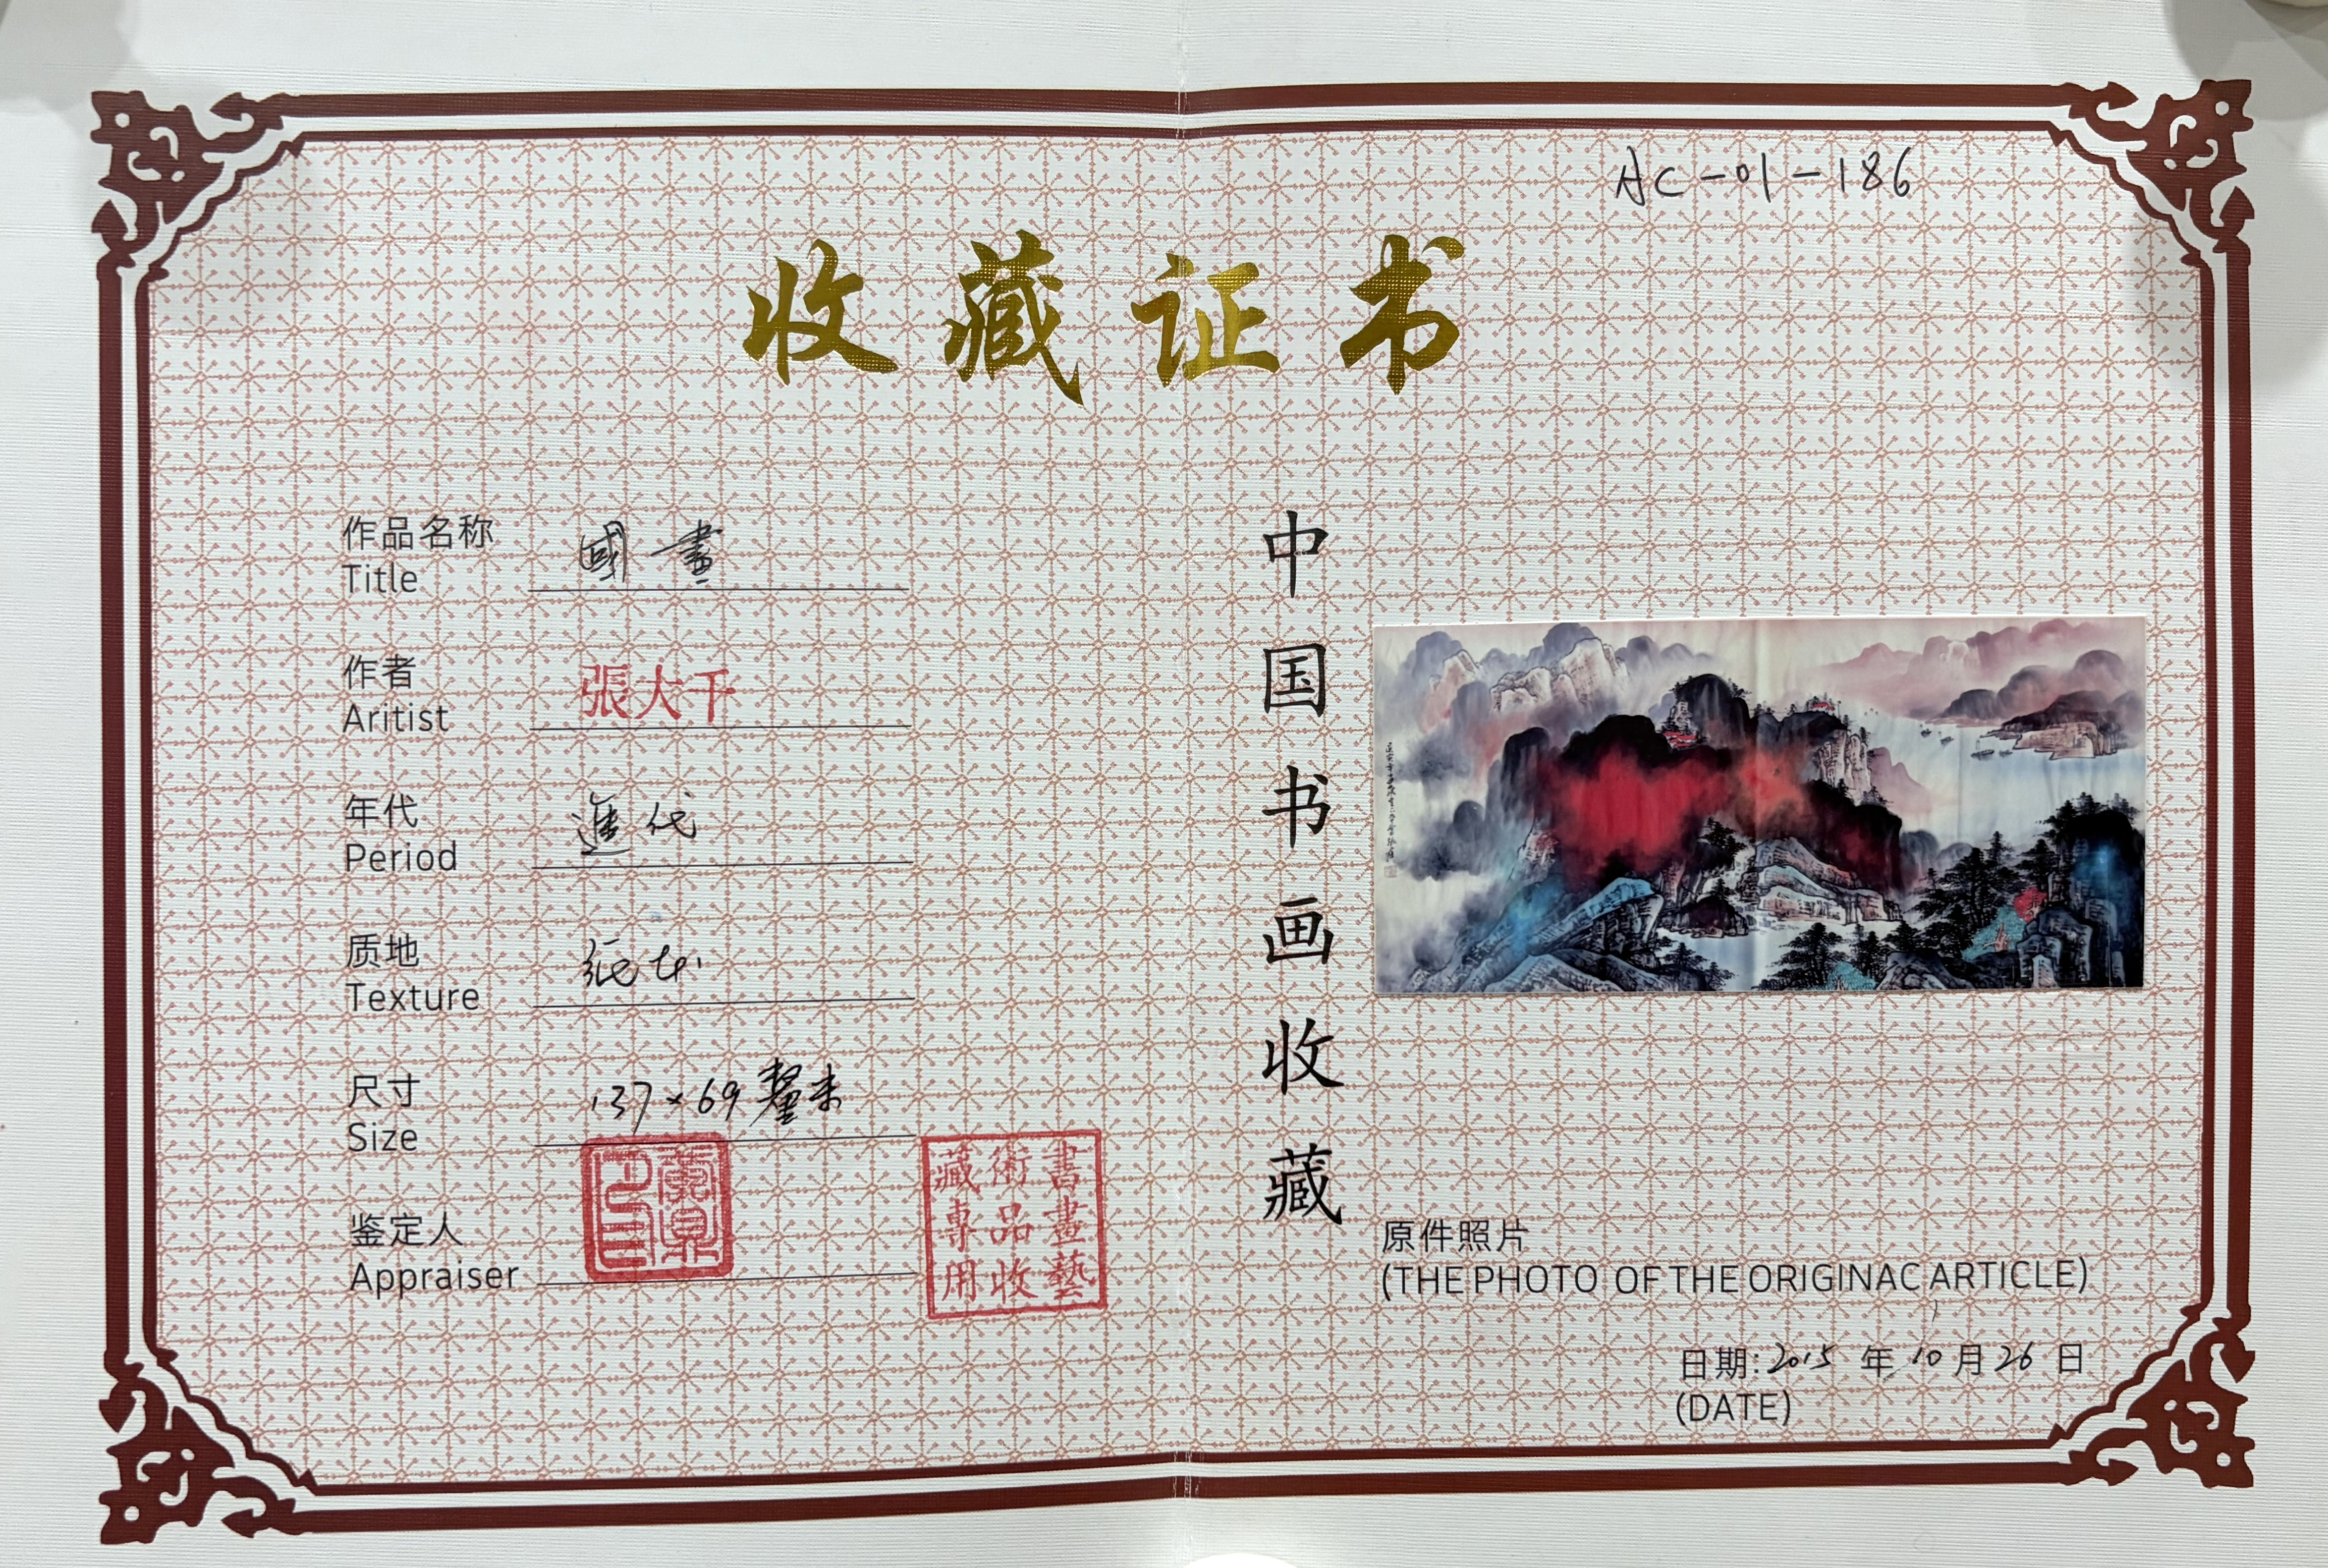 AC-01-186
收藏证书
作品名称
Title
國畫
作者
Aritist
張大千
年代
Period
進代
质地
Texture
纸本
尺寸
Size
137×69 釐米
鉴定人
Appraiser
書畫藝
術品收
藏專用
中国书画收藏
原件照片
(THE PHOTO OF THE ORIGINAC ARTICLE)
日期:2015 年 10 月 26 日
(DATE)